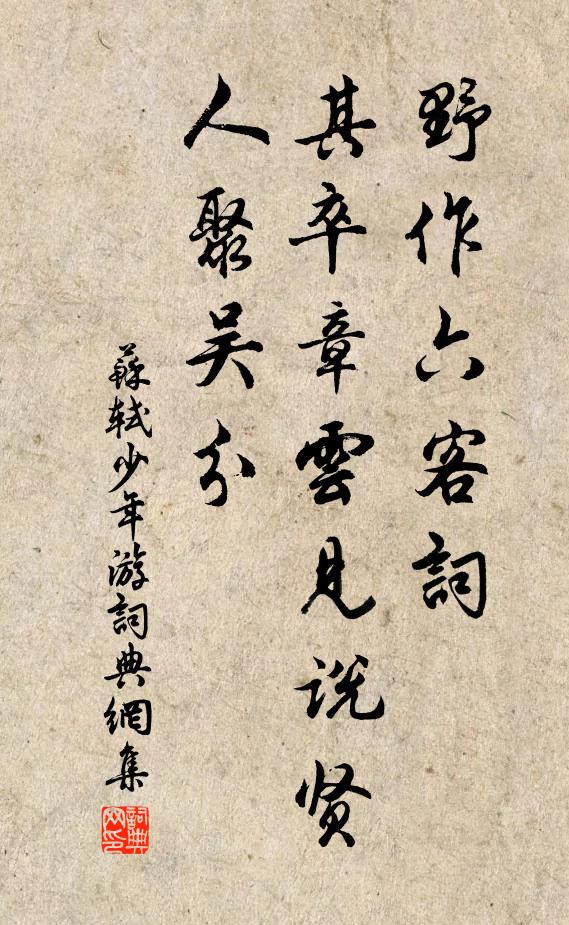 野作六客詞
其卒章雲見说贤
人聚吴分
蘇軾少年游詞典網集
詞典网印